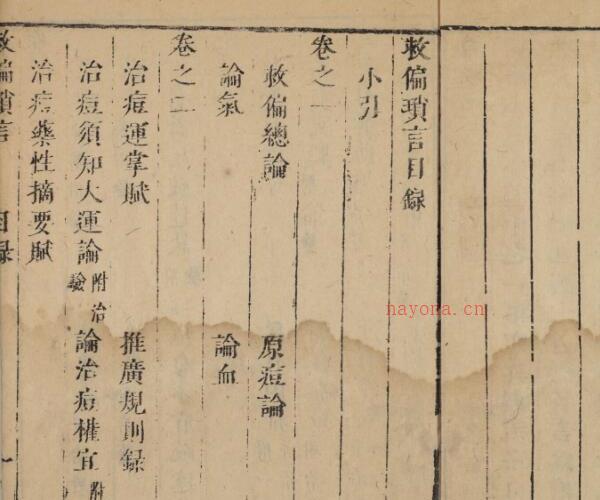 救偏瑣言目録
小引
卷之一
救偏總論 原痘論
論氣 論血
卷之二
治痘運掌賦 推廣規則録
治痘須知大運論 附治驗 論治痘權宜 附
治痘藥性摘要賦
救偏瑣言 目録 一
nayona.cn